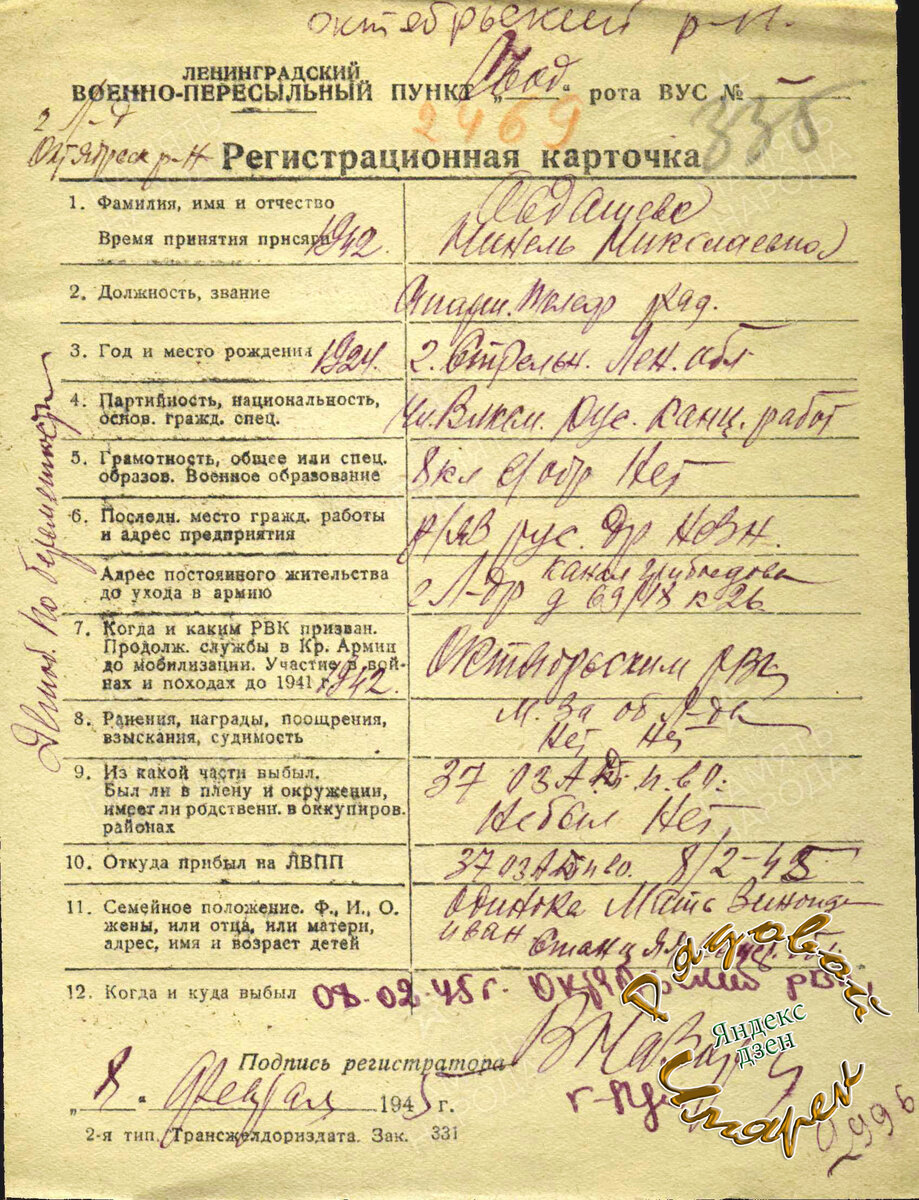 октябрьский р-н.
ЛЕНИНГРАДСКИЙ
ВОЕННО-ПЕРЕСЫЛЬНЫЙ ПУНКТ „ “ рота ВУС № —
2469
335
г Л-д
Октябрьск р-н
Регистрационная карточка
1. Фамилия, имя и отчество
Авдашева
Время принятия присяги 1942.
Нинель Николаевна
2. Должность, звание
Старш. телеф ряд.
3. Год и место рождения 1924.
г. Стрельн. Лен. обл
4. Партийность, национальность,
основ. гражд. спец.
чл. Влксм. рус. канц. работ
5. Грамотность, общее или спец.
образов. Военное образование
8 кл с/обр Нет
6. Последн. место гражд. работы
и адрес предприятия
Адрес постоянного жительства
до ухода в армию
канал грибоедова
г Л-др д 69/18 к 26
7. Когда и каким РВК призван.
Продолж. службы в Кр. Армии
до мобилизации. Участие в вой-
нах и походах до 1941 г. 1942.
Октябрьским рвк
8. Ранения, награды, поощрения,
взыскания, судимость
м. За об Л-да
Нет Нет
9. Из какой части выбыл.
Был ли в плену и окружении,
имеет ли родственн. в оккупиров.
районах
37 ОЗАД п.во.
Не был Нет
10. Откуда прибыл на ЛВПП
37 озАД пво. 8/2-45
11. Семейное положение. Ф., И., О.
жены, или отца, или матери,
адрес, имя и возраст детей
Одинока Мать
12. Когда и куда выбыл 08.02.45 г. Октябрьский
Подпись регистратора
„8“ Февраля 1945 г.
2-я тип. Трансжелдориздата. Зак. 331
2996
Демоб. по беременности
Рядовой
Яндекс
дзен
Старец